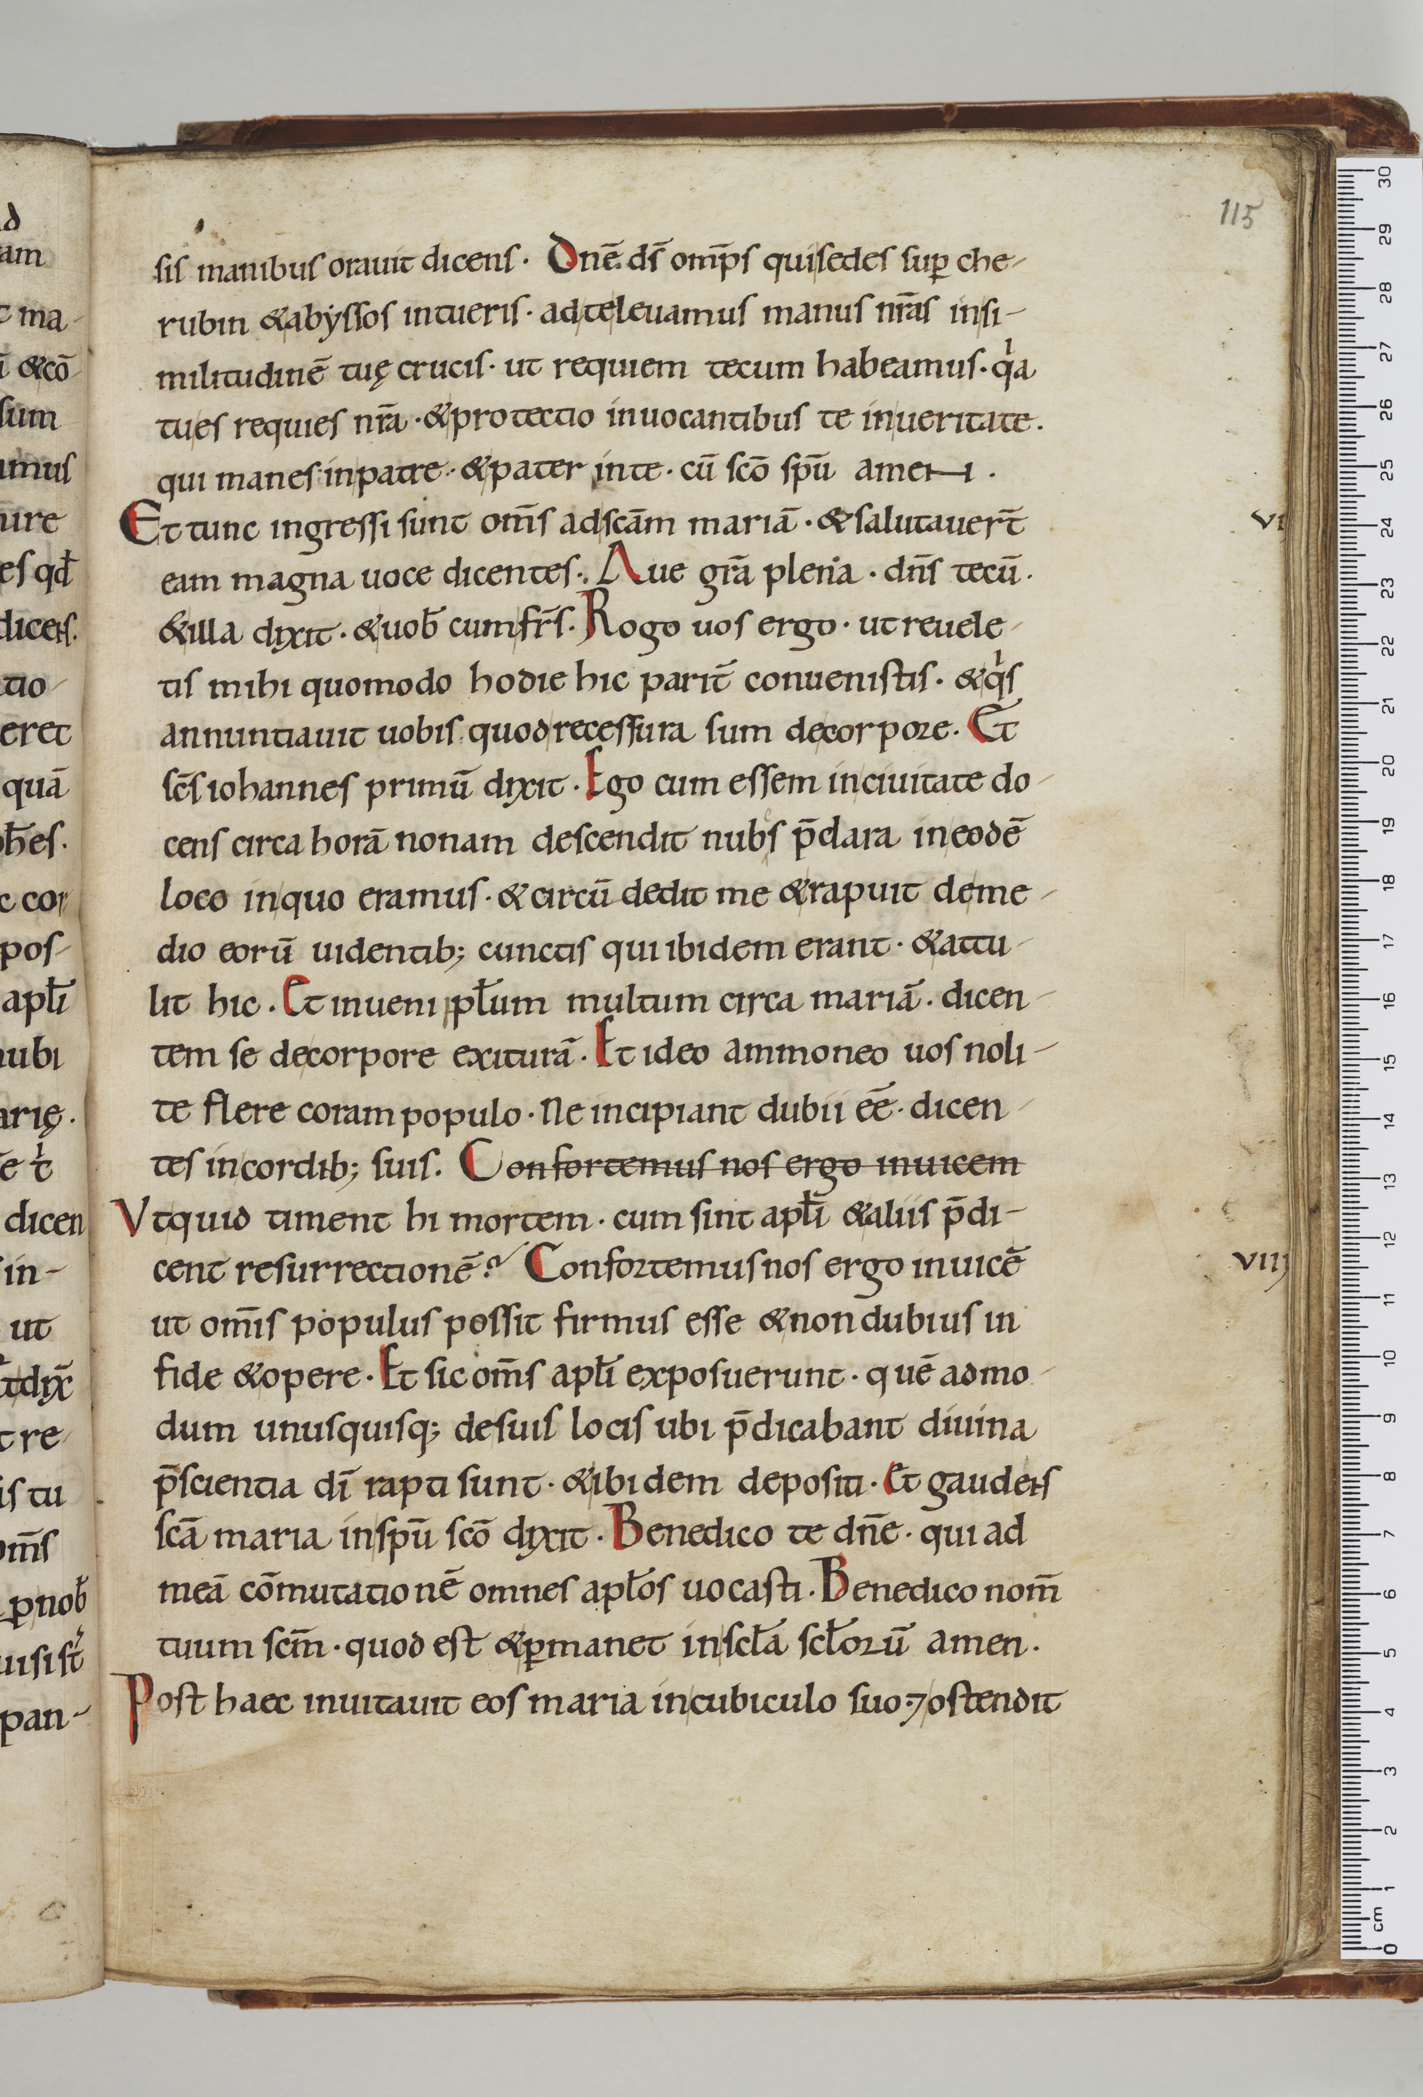 115
sis manibus orauit dicens · Dnē ds̄ omp̄s qui sedes suꝑ che-
rubin & abyssos intueris · ad te leuamus manus nr̄as in si-
militudinē tuę crucis · ut requiem tecum habeamus · qͥa
tu es requies nr̄a · & protectio inuocantibus te in ueritate .
qui manes in patre · & pater in te · cū scō spū amen .
Et tunc ingressi sunt om̄s ad scām mariā · & salutauer̄t
vi
eam magna uoce dicentes · Aue gr̄a plena · dn̄s tecū .
& illa dixit · & uob̄ cum fr̄s . Rogo uos ergo · ut reuele-
tis mihi quomodo hodie hic parit̄ conuenistis · & qͥs
annuntiauit uobis quod recessura sum de corpore . Et
sc̄s iohannes primū dixit . Ego cum essem in ciuitate do-
cens circa horā nonam descendit nubs p̄clara in eodē
loco in quo eramus · & circū dedit me & rapuit de me-
dio eorū uidentib; cunctis qui ibidem erant · & attu-
lit hic . Et inueni pl̄um multum circa mariā . dicen-
tem se de corpore exiturā . Et ideo ammoneo uos noli-
te flere coram populo · Ne incipiant dubii ēē · dicen-
tes in cordib; suis . Confortemus nos ergo inuicem
Vt quid timent hi mortem · cum sint apl̄i & aliis p̄di-
cent resurrectionē ? Confortemus nos ergo inuicē
viij
ut om̄is populus possit firmus esse & non dubius in
fide & opere . Et sic om̄s apl̄i exposuerunt · quē admo-
dum unusquisq; de suis locis ubi p̄dicabant diuina
p̄scientia dī rapti sunt · & ibidem depositi . Et gaudens
scā maria in spū scō dixit . Benedico te dn̄e · qui ad
meā cōmutationē omnes apl̄os uocasti . Benedico nom̄
tuum scm̄ · quod est & ꝑmanet in scl̄a scl̄orū amen .
Post haec inuitauit eos maria in cubiculo suo · ⁊ ostendit